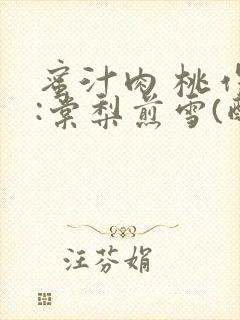 蜜汁肉桃作
:棠梨煎雪(酥
汪芬娟